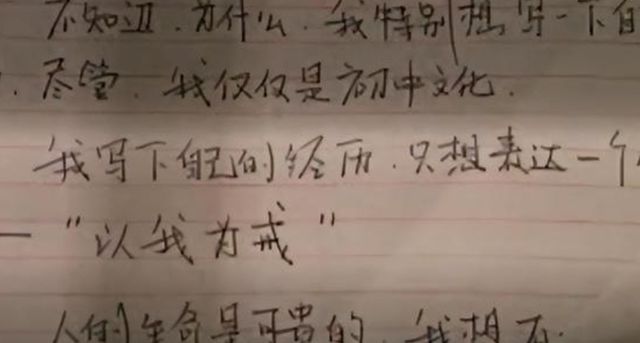 不知道.为什么.我特别想写一下自
.尽管.我仅仅是初中文化.
我写下自己的经历.只想表达一个
—"以我为戒"
人的生命是可贵的.我想不